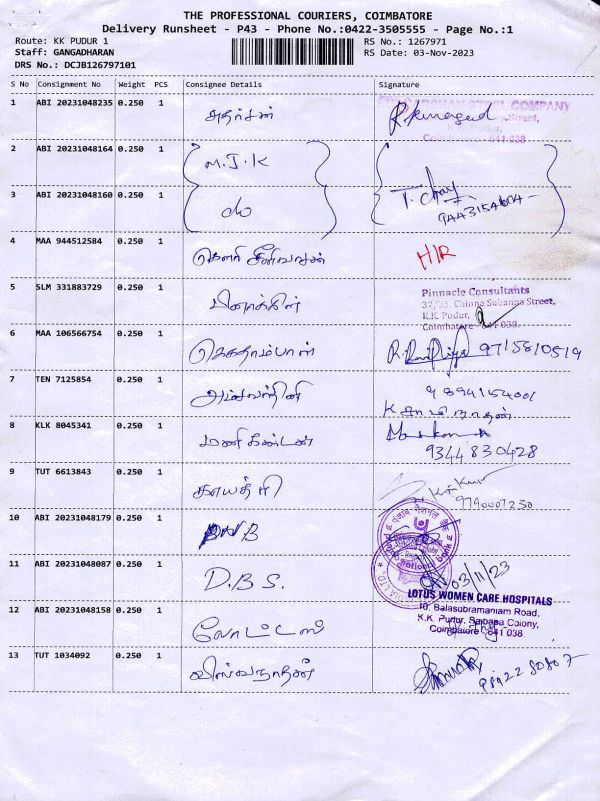 THE PROFESSIONAL COURIERS, COIMBATORE
Delivery Runsheet - P43 - Phone No.:0422-3505555 - Page No.:1
Route: KK PUDUR 1 RS No.: 1267971
Staff: GANGADHARAN RS Date: 03-Nov-2023
DRS No.: DCJB126797101
S No Consignment No Weight PCS Consignee Details Signature
1 ABI 20231048235 0.250 1 அதர்சன் STEEL COMPANY
Street,
K.K. Pudur,
Coimbatore - 641 038
2 ABI 20231048164 0.250 1 M.J.K
3 ABI 20231048160 0.250 1 do T.
4 MAA 944512584 0.250 1 கௌரி சீனிவாசன் H/R
5 SLM 331883729 0.250 1 பினாக்கிள் Pinnacle Consultants
Chinna Subanna Street,
K.K. Pudur,
Coimbatore - 641 038
6 MAA 106566754 0.250 1 கோதாம்பாள் R. 9715810519
7 TEN 7125854 0.250 1 அம்சவர்தினி 9894154001
8 KLK 8045341 0.250 1 மணிகண்டன் 9344830428
9 TUT 6613843 0.250 1 காயத்ரி 9790007230
10 ABI 20231048179 0.250 1
11 ABI 20231048087 0.250 1 D.B.S. 03/11/23
LOTUS WOMEN CARE HOSPITALS
12 ABI 20231048158 0.250 1 லோட்டஸ் 10, Balasubramaniam Road,
K.K. Pudur, Saibaba Colony,
Coimbatore - 641 038
13 TUT 1034092 0.250 1 விஸ்வநாதன் 98422 80807